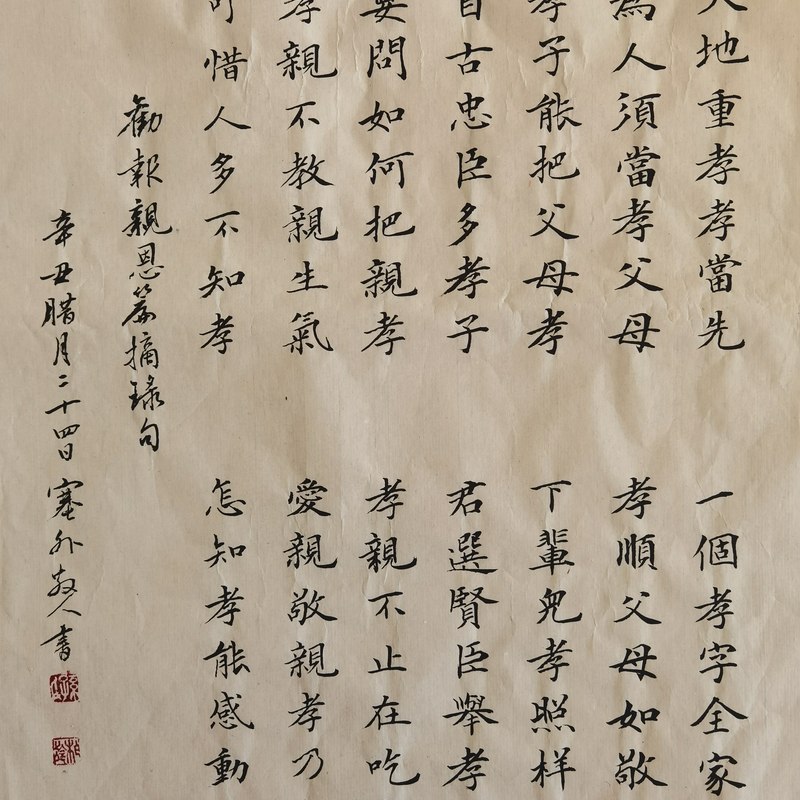 地重孝孝當先 一個孝字全家
為人須當孝父母 孝順父母如敬
孝子能把父母孝 下輩兒孝照样
自古忠臣多孝子 君選賢臣舉孝
要問如何把親孝 孝親不止在吃
孝親不教親生氣 愛親敬親孝乃
可惜人多不知孝 怎知孝能感動
勸報親恩篇摘録句
辛丑腊月二十四日 塞外散人書